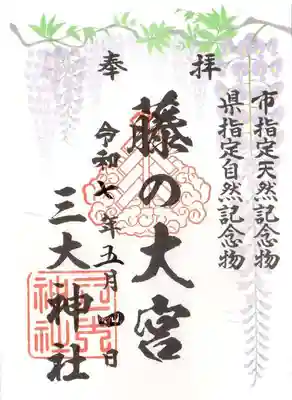 奉拝
市指定天然記念物
県指定自然記念物
藤の大宮
令和七年五月四日
三大神社
三大神社